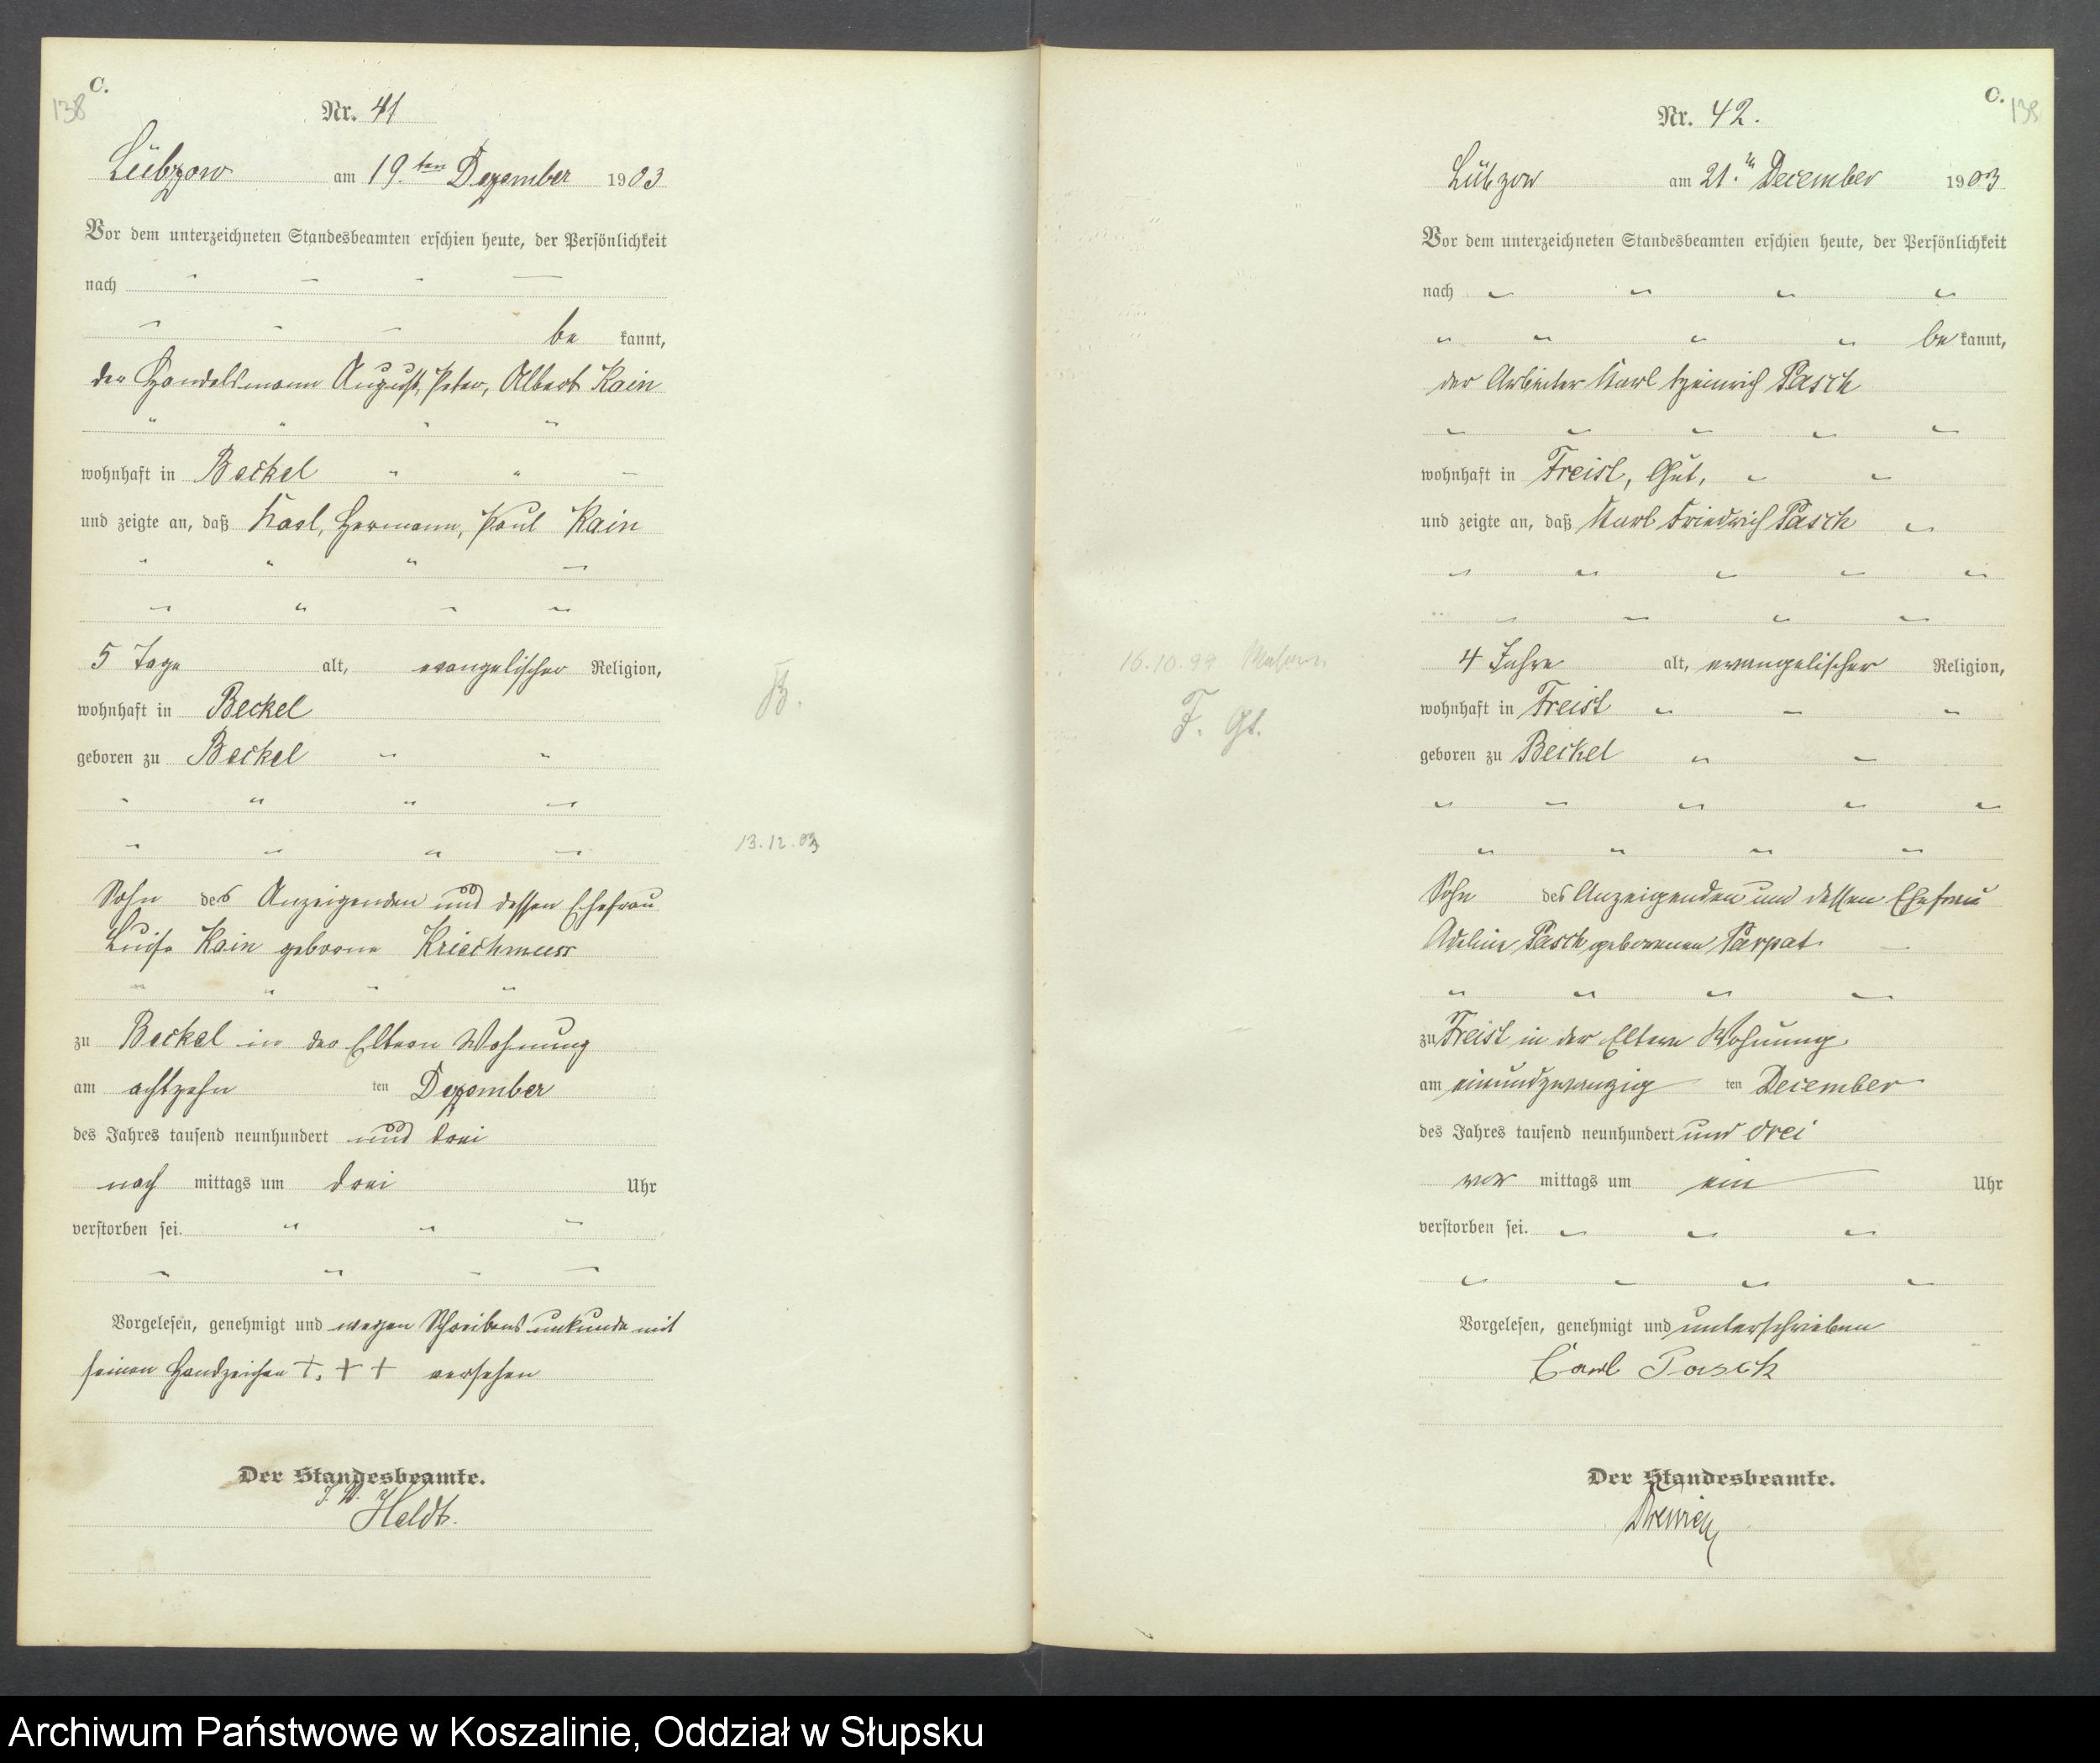 C.
138
Nr. 41
Lübzow am 19.ten Dezember 1903
Vor dem unterzeichneten Standesbeamten erschien heute, der Persönlichkeit
nach
be kannt,
der Handelsmann August, Peter, Albert Kain
wohnhaft in Beckel
und zeigte an, daß Karl, Hermann, Paul Kain
5 Tage alt, evangelischer Religion,
wohnhaft in Beckel
B.
geboren zu Beckel
13.12.03
Sohn des Anzeigenden und dessen Ehefrau
Luise Kain geborne
zu Beckel in der Eltern Wohnung
am achtzehn ten Dezember
des Jahres tausend neunhundert und drei
nach mittags um drei Uhr
verstorben sei.
Vorgelesen, genehmigt und wegen Schreibensunkunde mit
seinen Handzeichen +. + + versehen
Der Standesbeamte.
Heldt.
C.
138
Nr. 42.
Lübzow am 21.ten December 1903
Vor dem unterzeichneten Standesbeamten erschien heute, der Persönlichkeit
nach
be kannt,
der Arbeiter Karl Heinrich Pasch
wohnhaft in Freist, Gut,
und zeigte an, daß Karl Friedrich Pasch
16.10.99
4 Jahre alt, evangelischer Religion,
wohnhaft in Freist
F. Gt.
geboren zu Beckel
Sohn des Anzeigenden und dessen Ehefrau
Pasch geborenen Parpat
zu Freist in der Eltern Wohnung.
am einundzwanzig ten December
des Jahres tausend neunhundert und drei
vor mittags um ein Uhr
verstorben sei.
Vorgelesen, genehmigt und unterschrieben
Carl Pasch
Der Standesbeamte.
Archiwum Państwowe w Koszalinie, Oddział w Słupsku